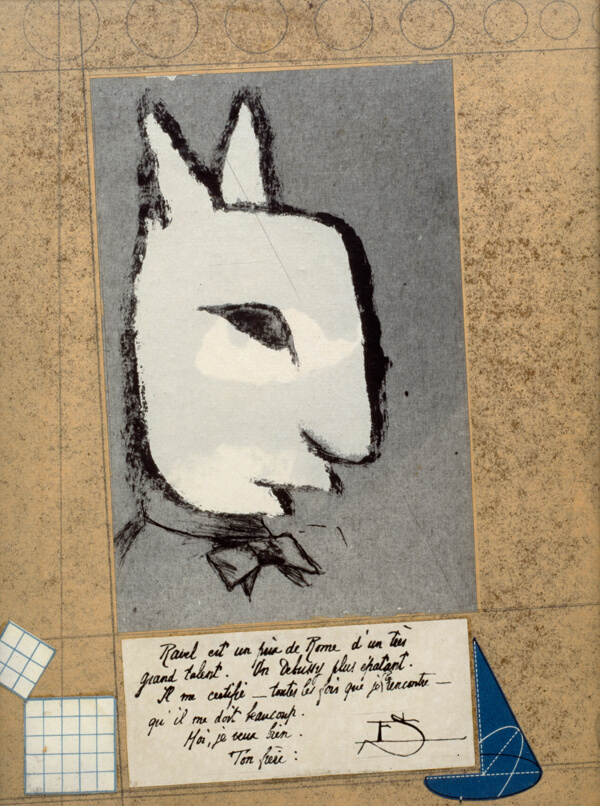 Ravel est un prix de Rome d'un très
grand talent. Un Debussy plus épatant.
Il me certifie – toutes les fois que je le rencontre –
qu'il me doit beaucoup.
Moi, je veux bien.
Ton frère :
ES